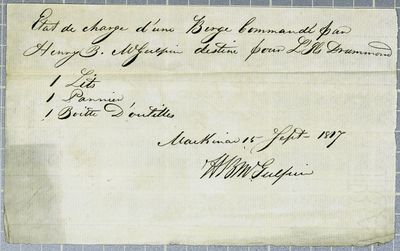 Etat de charge d'une Berge Commandé par
Henry B. McGulpin destiné pour L'Ile Drummond
1 Lits
1 Pannier
1 Boitte D'outilles
Mackinac 15 Sept 1817
H B McGulpin